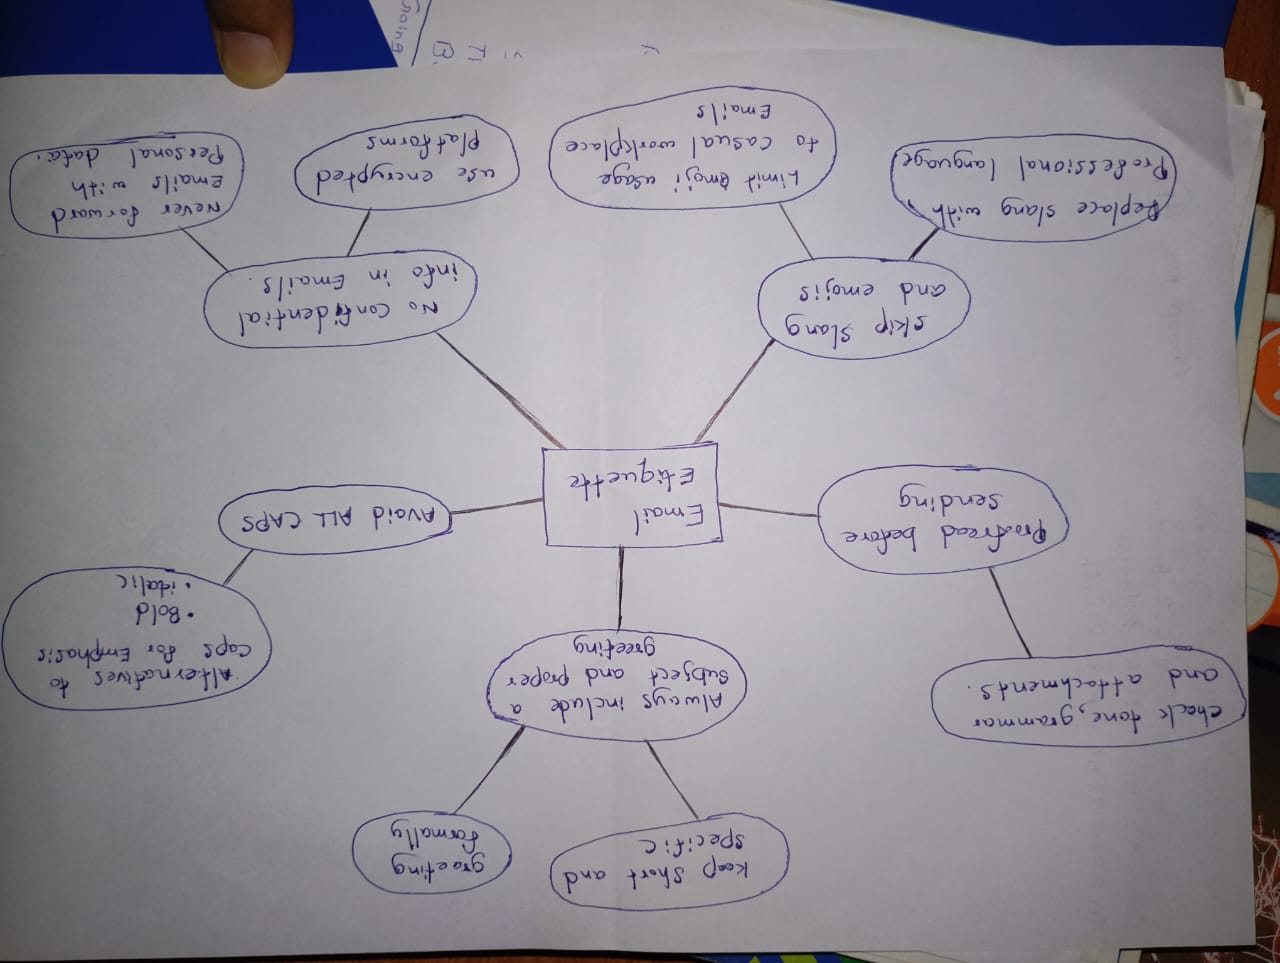 Keep short and
specific
greeting
formally
Always include a
subject and proper
greeting
Check tone, grammar
and attachments.
Proofread before
Sending
Email
Etiquette
Avoid ALL CAPS
Alternatives to
Caps for Emphasis
• Bold
• italic
Skip Slang
and emojis
Replace slang with
Professional language
Limit Emoji usage
to casual workplace
Emails
No Confidential
info in Emails.
use encrypted
Platforms
Never forward
Emails with
Personal data.